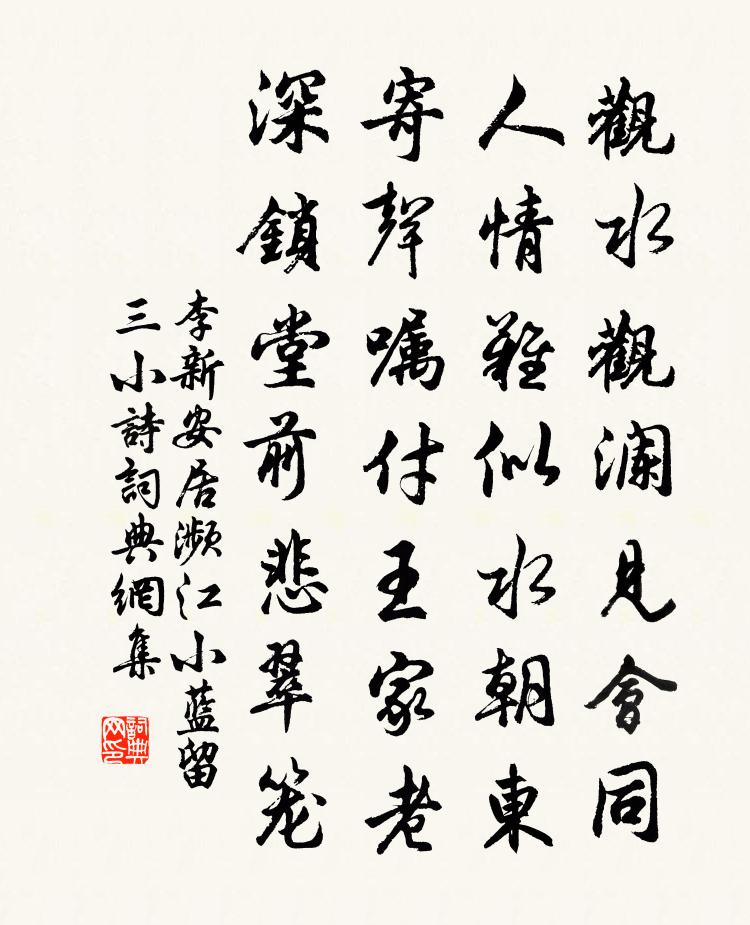 觀水觀瀾見會同
人情難似水朝東
寄聲囑付王家老
深鎖堂前悲翠笼
李新安居瀕江小藍留
三小詩詞典網集
詞典
网印